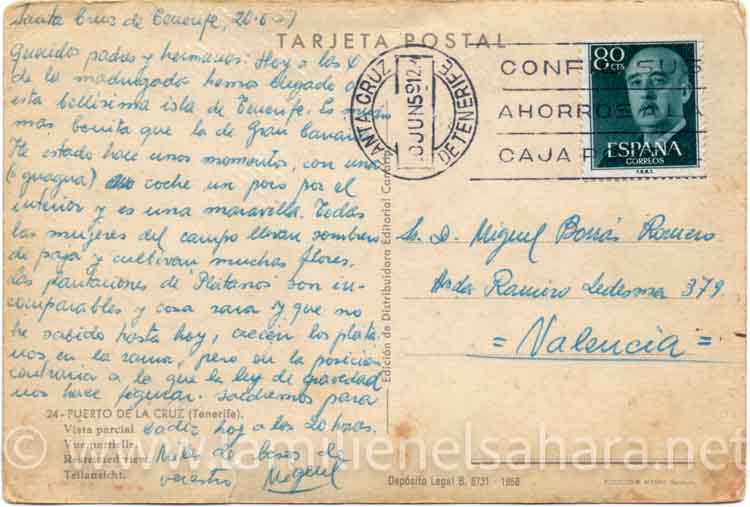 Santa Cruz de Tenerife, 20.6.59
TARJETA POSTAL
Queridos padres y hermanos: Hoy a las 6
de la madrugada hemos llegado a
esta bellísima isla de Tenerife. Es
mas bonita que la de Gran Canaria
He estado hace unos momentos, con una
(o guagua) coche un poco por el
interior y es una maravilla. Todas
las mujeres del campo llevan sombrero
de paja y cultivan muchas flores.
Las plantaciones de "Plátanos" son in-
comparables y cosa rara y que no
he sabido hasta hoy, crecen los pláta-
nos, en la rama, pero en la posición
contraria a la que la ley de gravedad
nos hace figurar. Saldremos para
Cadiz hoy a las 20 horas.
Miles de besos de
vuestro Miguel
24.-PUERTO DE LA CRUZ (Tenerife).
Vista parcial.
Vue partielle.
Restricted view.
Teilansicht.
Edición de Distribuidora Editorial Canaria
SANTA CRUZ DE TENERIFE
20 JUN 59 12
CONF SUS
AHORROS A LA
CAJA P
80 CTS
ESPAÑA
CORREOS
Sr. D. Miguel Borrás Romero
Avda Ramiro Ledesma 379
= Valencia =
Depósito Legal B. 8731 - 1958
© www.lamilienelsahara.net